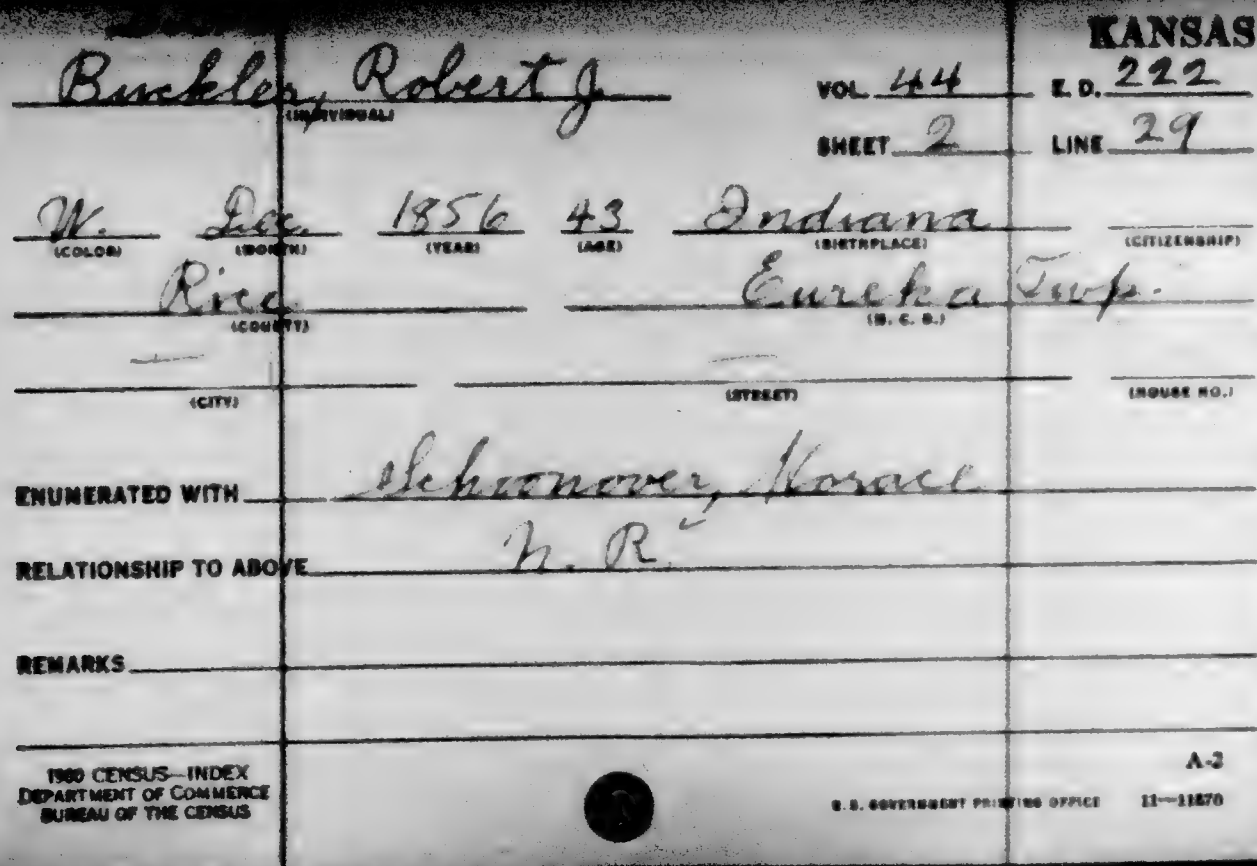 KANSAS
Buckler, Robert J.
(INDIVIDUAL)
VOL. 44 E. D. 222
SHEET 2 LINE 29
W. Dec. 1856 43 Indiana
(COLOR) (MONTH) (YEAR) (AGE) (BIRTHPLACE) (CITIZENSHIP)
Rice Eureka Twp.
(COUNTY) (M. C. D.)
— —
(CITY) (STREET) (HOUSE NO.)
ENUMERATED WITH Schoonover, Horace
RELATIONSHIP TO ABOVE N. R.
REMARKS
1900 CENSUS—INDEX
DEPARTMENT OF COMMERCE
BUREAU OF THE CENSUS
A-2
U.S. GOVERNMENT PRINTING OFFICE 11—11870